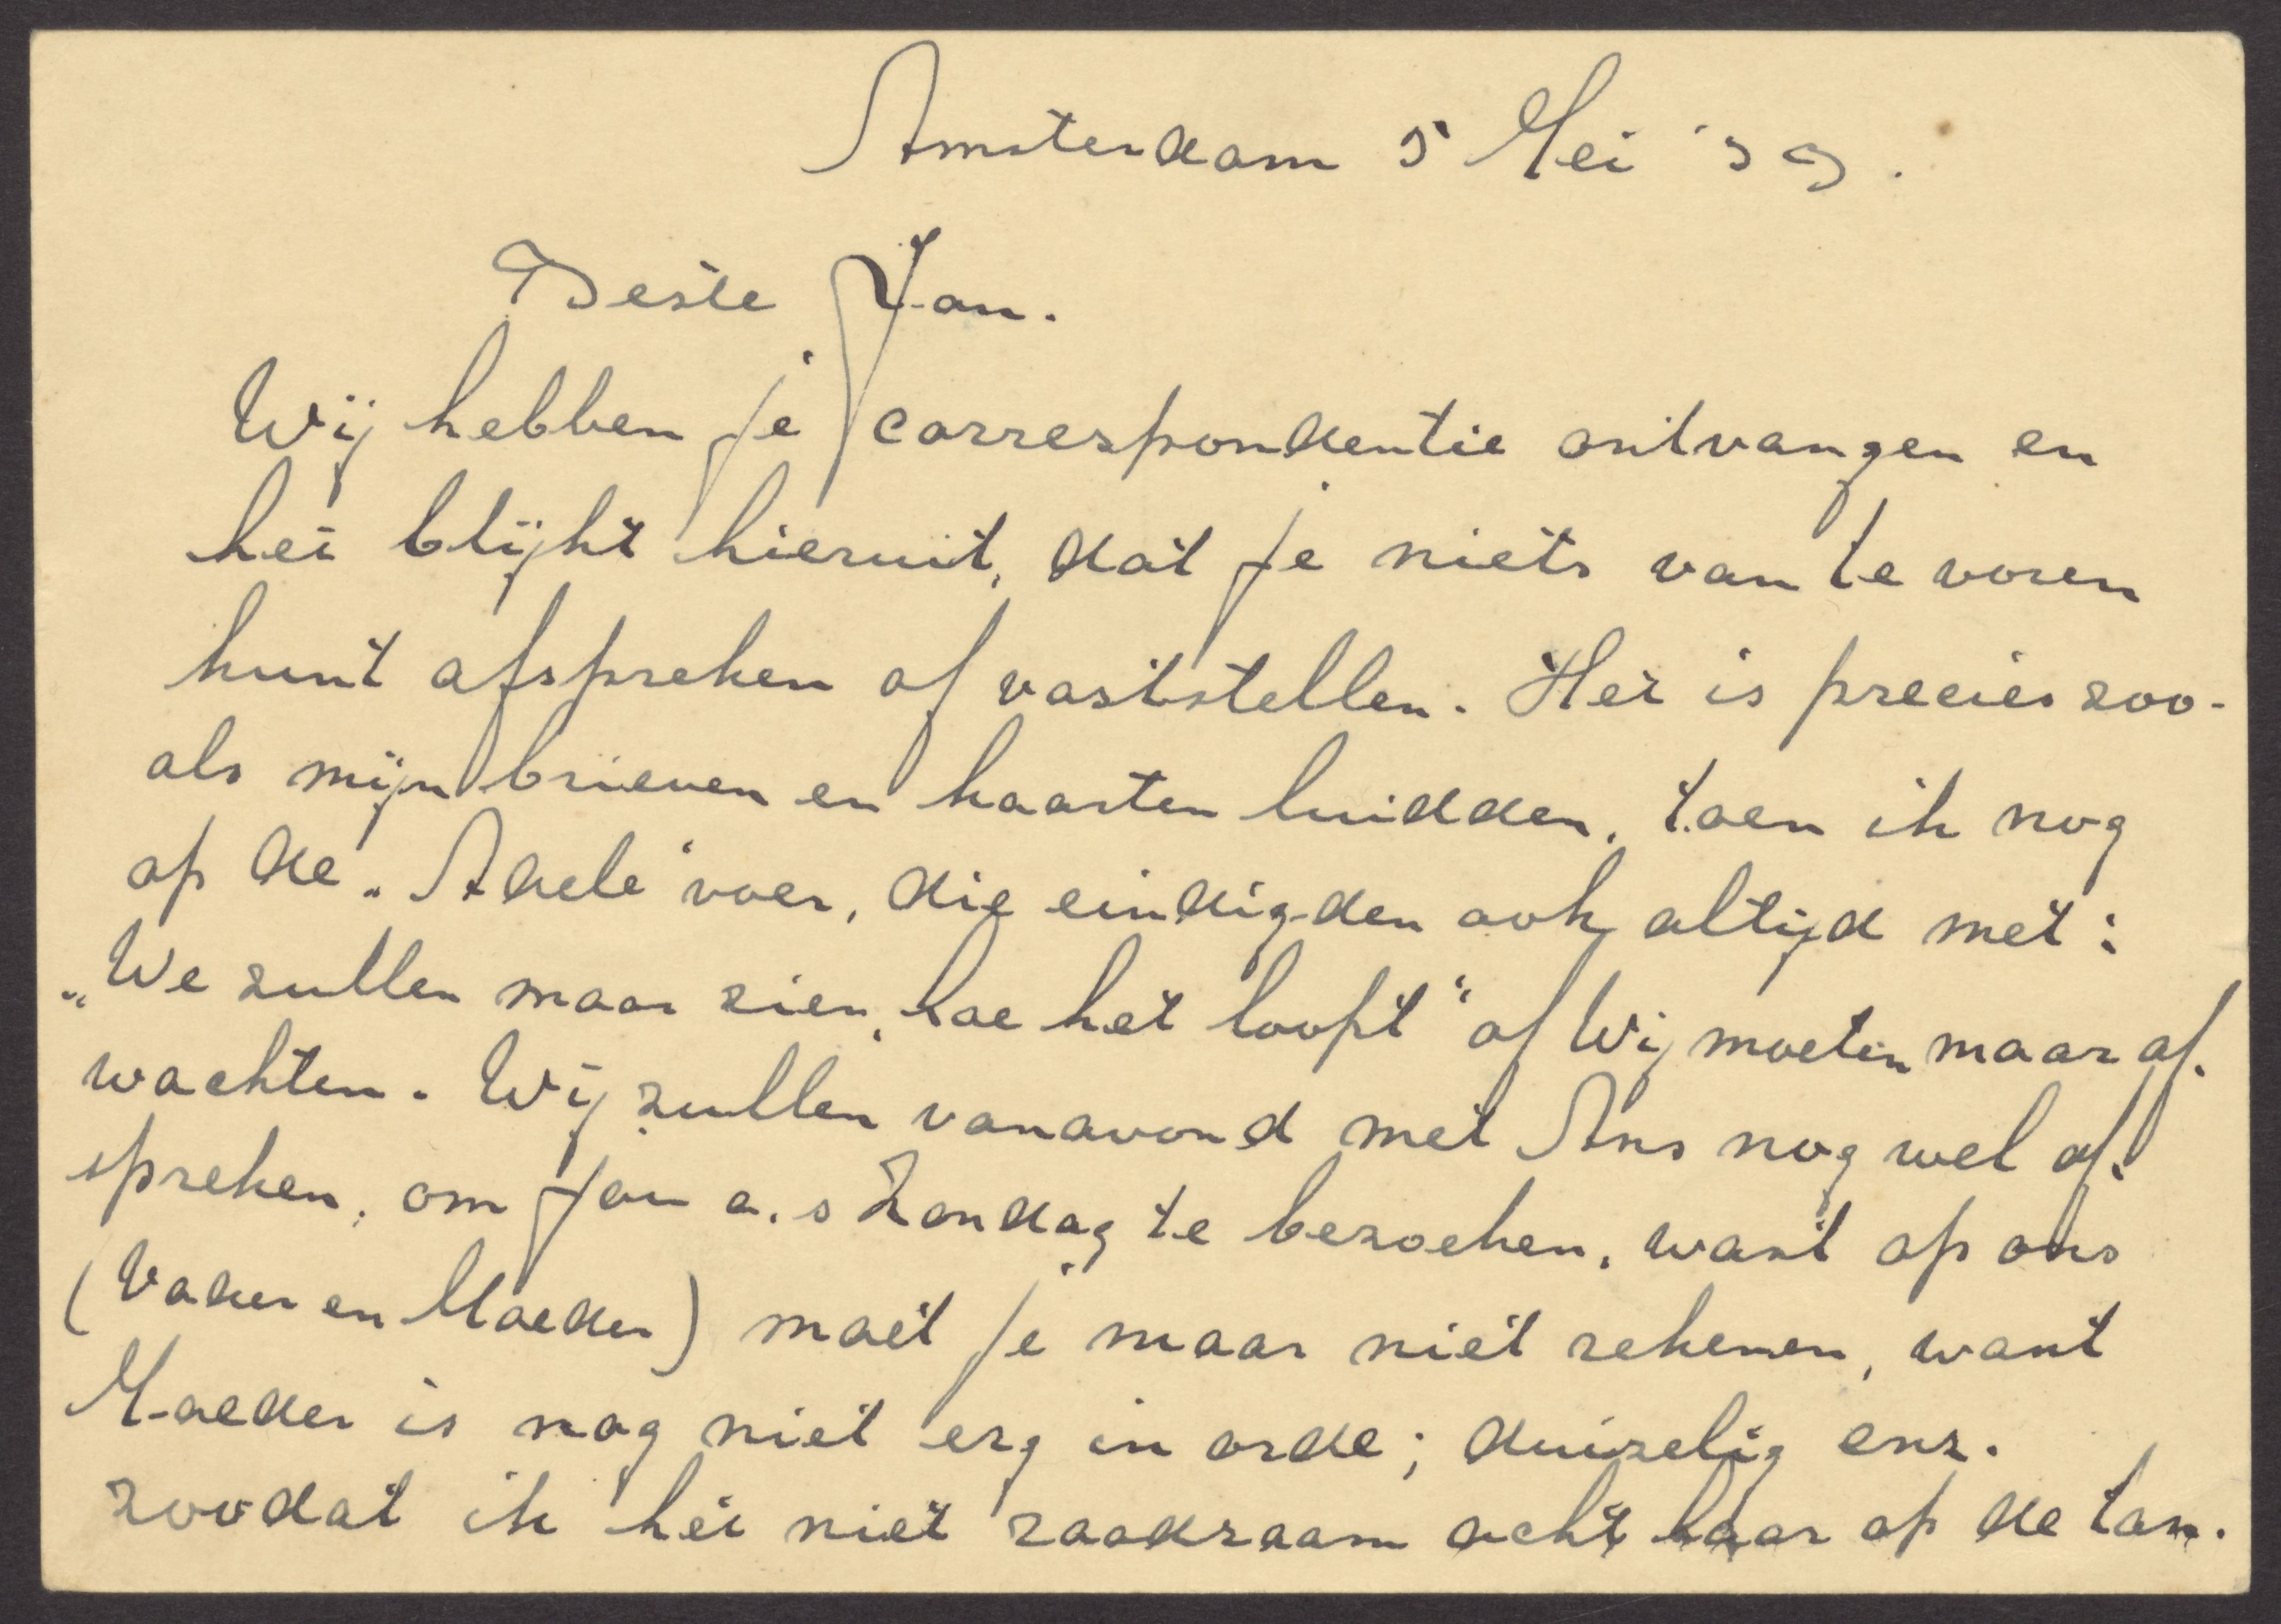 Amsterdam 5 Mei '39.
Beste Jan.
Wij hebben je correspondentie ontvangen en
het blijkt hieruit, dat je niets van te voren
kunt afspreken of vaststellen. Het is precies zoo-
als mijn brieven en kaarten luidden, toen ik nog
op de „Adele" voer, die eindigden ook altijd met:
„We zullen maar zien, hoe het loopt" of Wij moeten maar af-
wachten. Wij zullen vanavond met Ans nog wel af-
spreken, om jou a.s Zondag te bezoeken, want op ons
(Vader en Moeder) moet je maar niet rekenen, want
Moeder is nog niet erg in orde; duizelig enz.
zoodat ik het niet raadzaam acht haar op de tan-